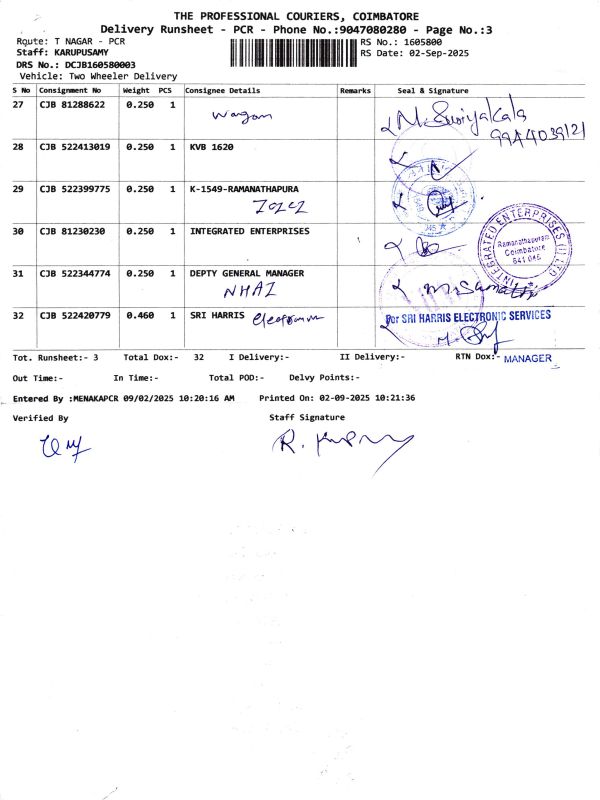 THE PROFESSIONAL COURIERS, COIMBATORE
Delivery Runsheet - PCR - Phone No.:9047080280 - Page No.:3
Route: T NAGAR - PCR
RS No.: 1605800
Staff: KARUPUSAMY
RS Date: 02-Sep-2025
DRS No.: DCJB160580003
Vehicle: Two Wheeler Delivery
S No Consignment No Weight PCS Consignee Details Remarks Seal & Signature
27 CJB 81288622 0.250 1 Wagon
M. Suriyakala
9944039121
28 CJB 522413019 0.250 1 KVB 1620
29 CJB 522399775 0.250 1 K-1549-RAMANATHAPURA
30 CJB 81230230 0.250 1 INTEGRATED ENTERPRISES
INTEGRATED ENTERPRISES (I) LTD
Ramanathapuram
Coimbatore
641 045
31 CJB 522344774 0.250 1 DEPTY GENERAL MANAGER
NHAI
32 CJB 522420779 0.460 1 SRI HARRIS
For SRI HARRIS ELECTRONIC SERVICES
Tot. Runsheet:- 3 Total Dox:- 32 I Delivery:- II Delivery:- RTN Dox:- MANAGER
Out Time:- In Time:- Total POD:- Delvy Points:-
Entered By :MENAKAPCR 09/02/2025 10:20:16 AM Printed On: 02-09-2025 10:21:36
Verified By Staff Signature